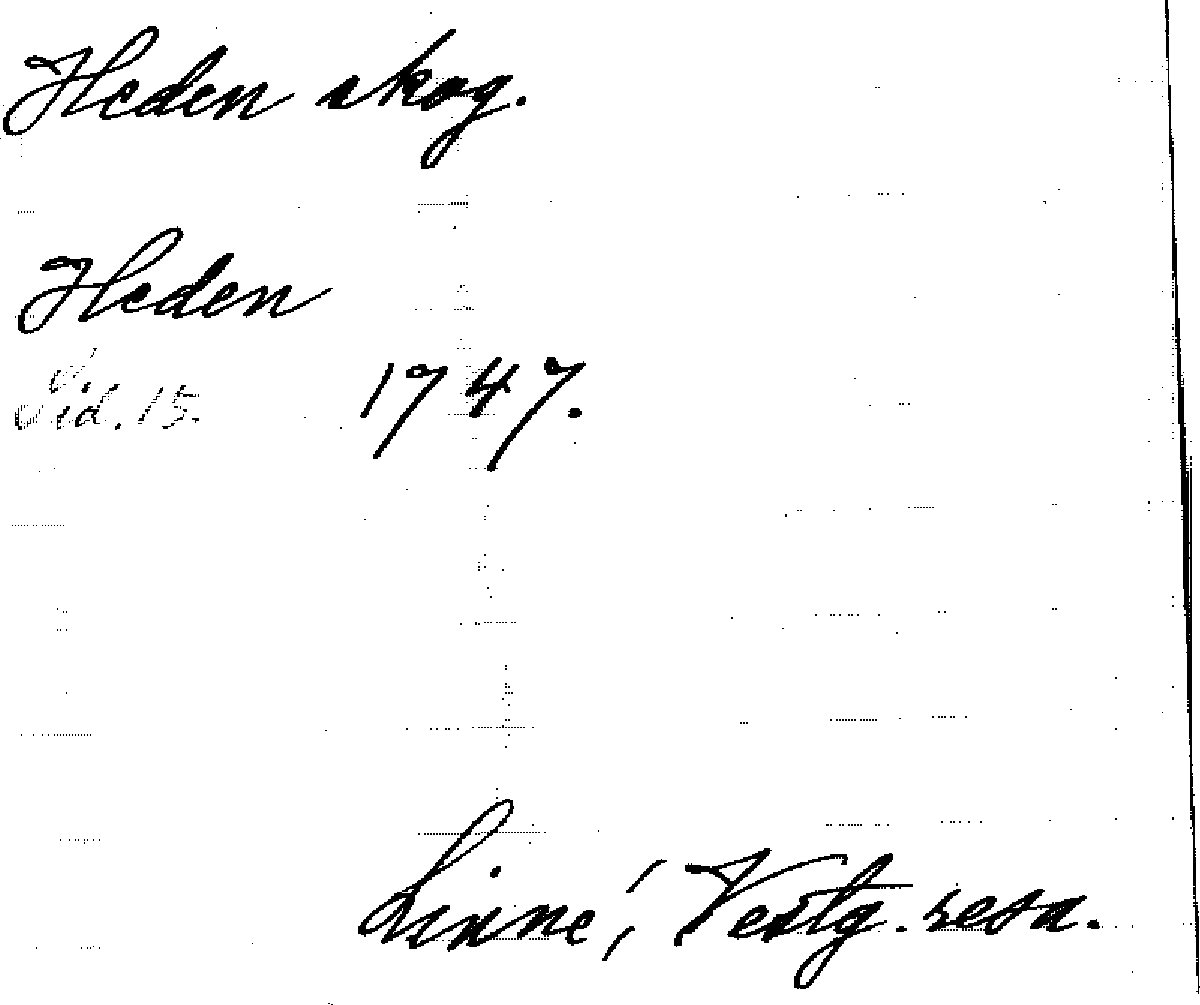 Heden skog.
Heden
Sid. 15. 1747.
Linné, Vestg. resa.